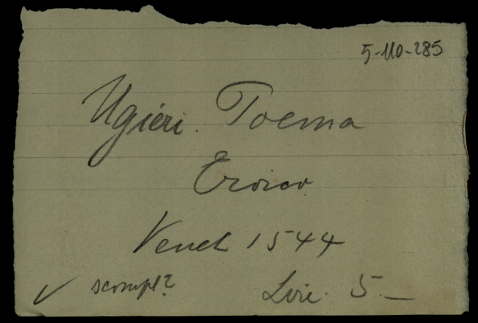 5-110-285
Ugieri. Poema
Eroico
Venet 1544
✓ scompl? Lire. 5.—